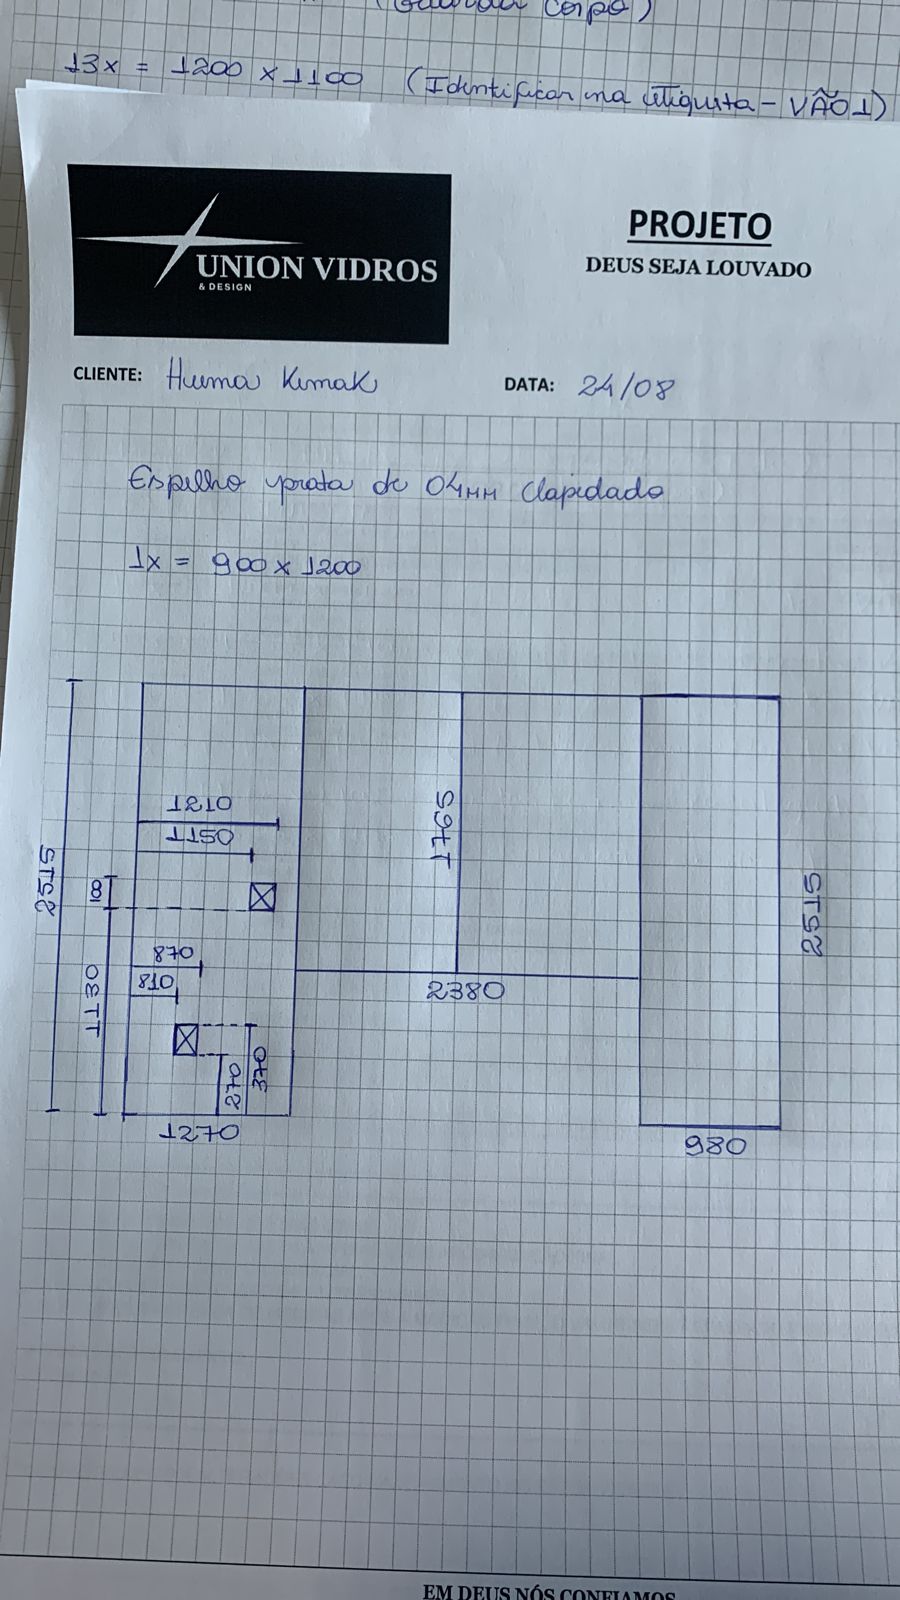 Corpo)
13x = 1200 x 1100 (Identificar na etiqueta - VÃO1)
UNION VIDROS
& DESIGN
PROJETO
DEUS SEJA LOUVADO
CLIENTE:
DATA: 24/08
Espelho prata de 04MM Lapidado
1x = 900 x 1200
1210
1150
1765
2515
100
2515
870
810
2380
1130
270
370
1270
980
EM DEUS NÓS CONFIAMOS